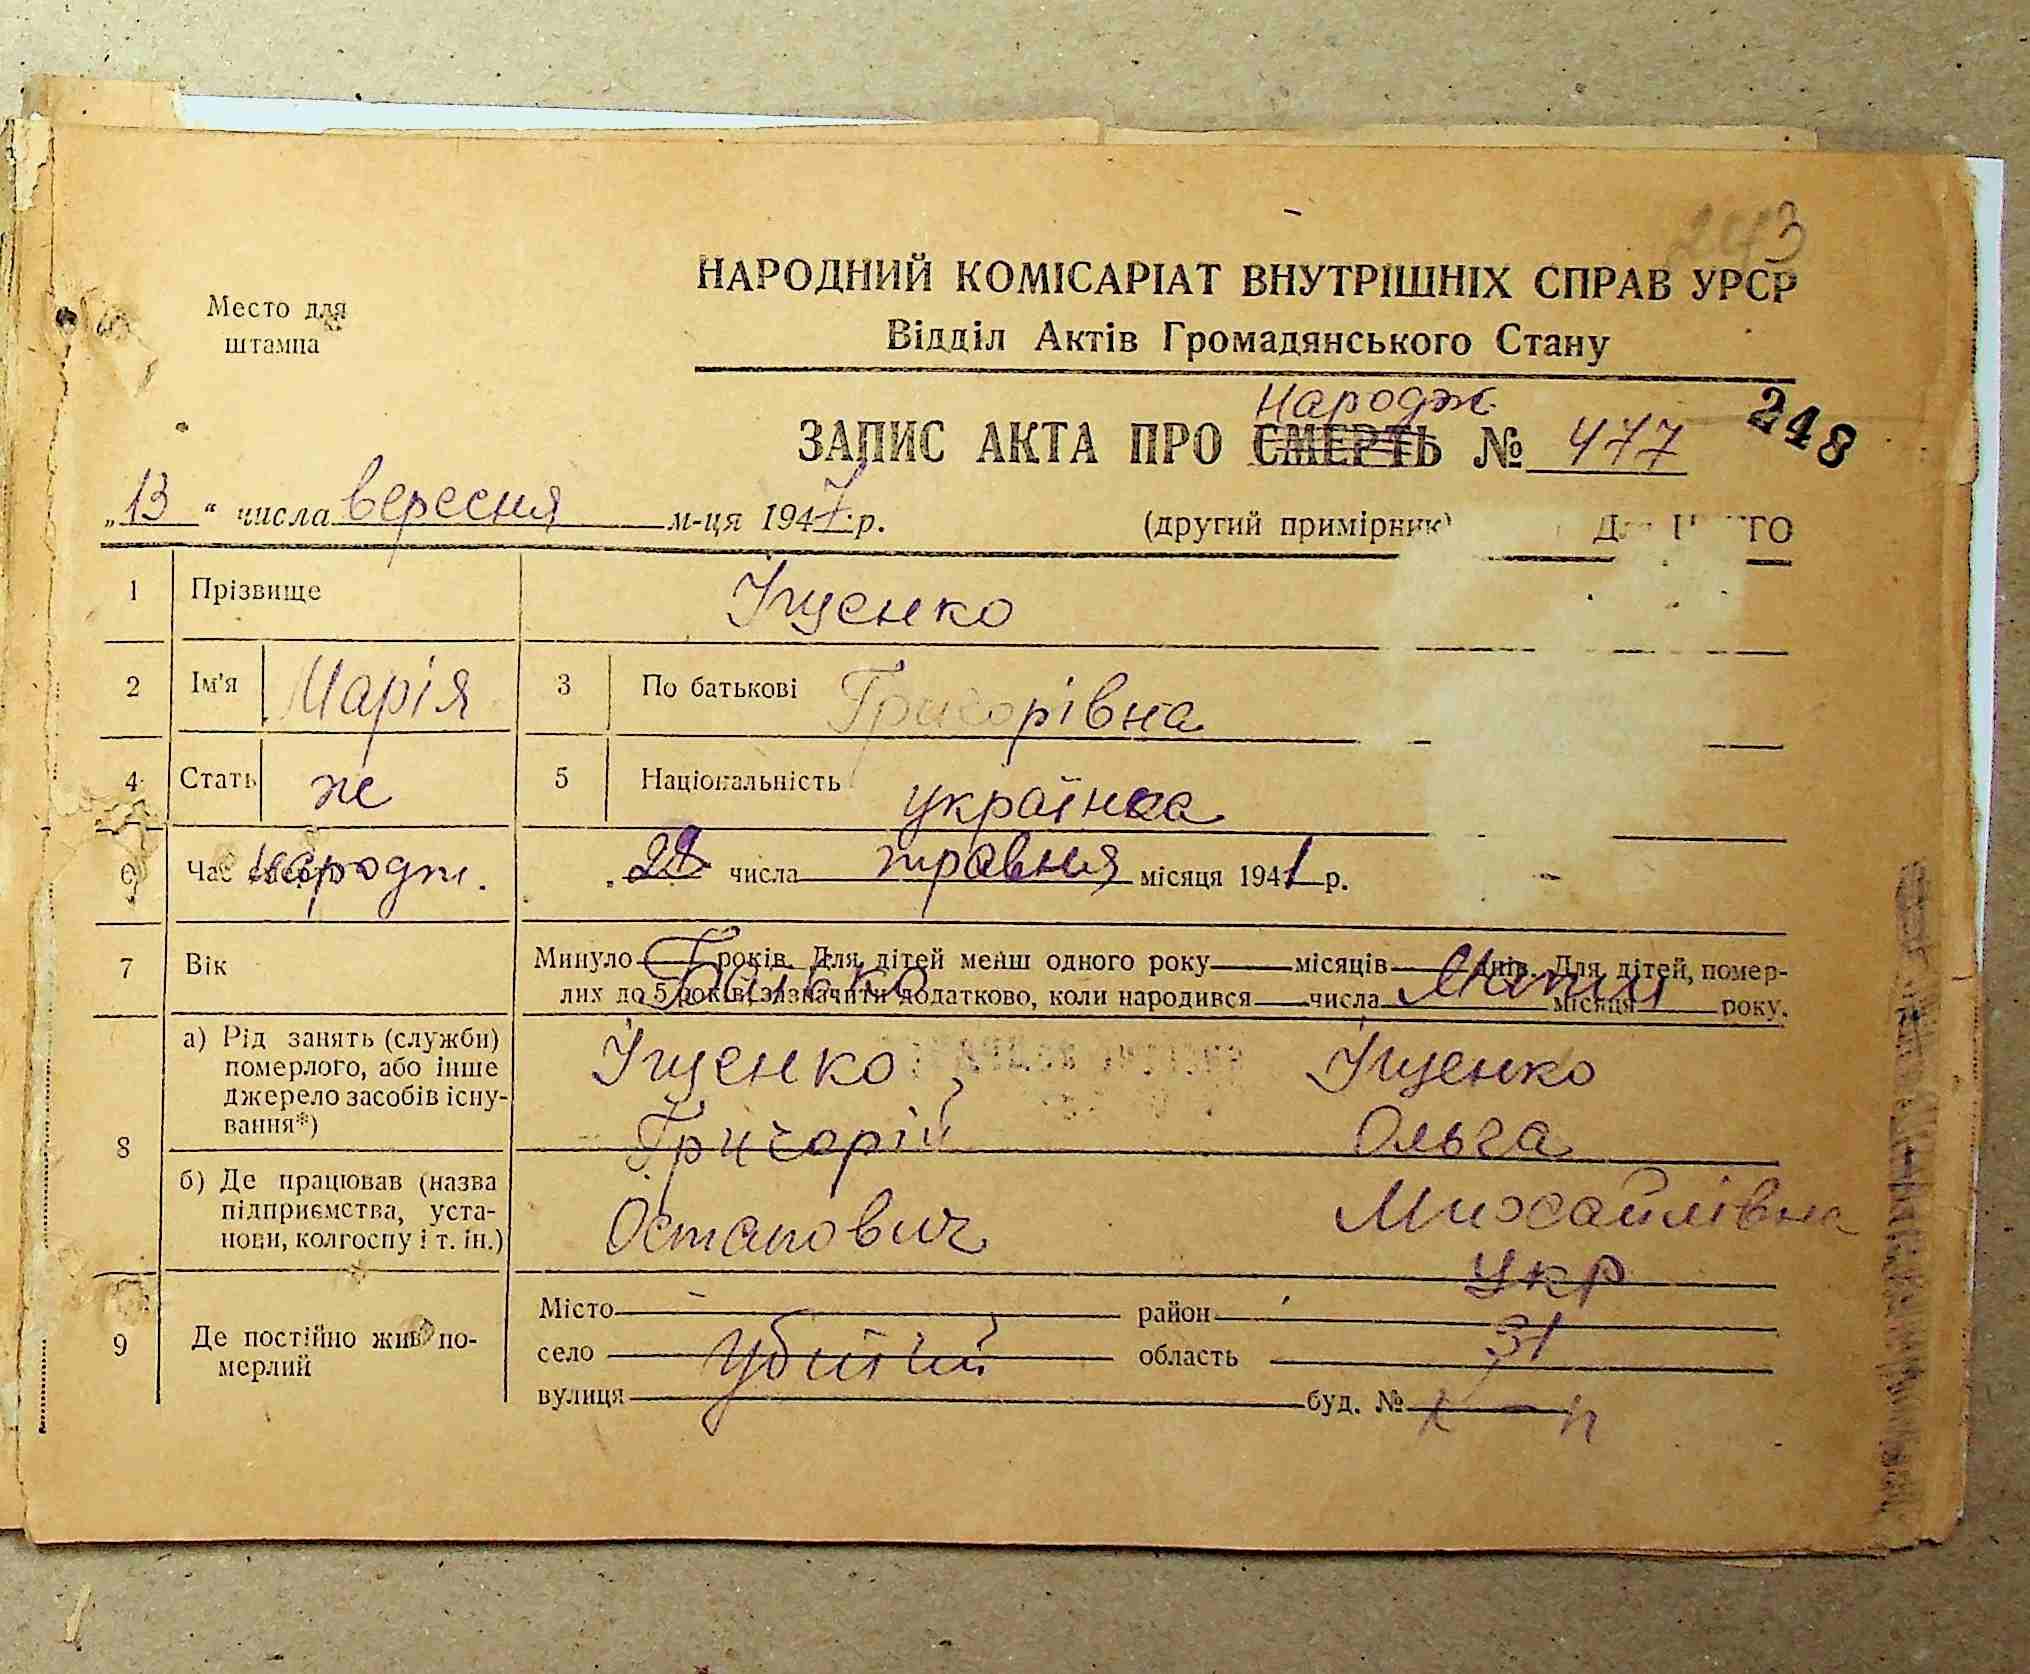 243
Место для
штампа
НАРОДНИЙ КОМІСАРІАТ ВНУТРІШНІХ СПРАВ УРСР
Відділ Актів Громадянського Стану
Народж.
ЗАПИС АКТА ПРО СМЕРТЬ № 477
248
„13" числа вересня м-ця 1947 р. (другий примірник)
1 Прізвище Іщенко
2 Ім'я Марія 3 По батькові Григорівна
4 Стать же 5 Національність українка
6 Час народж. 28 числа травня місяця 1941 р.
7 Вік Минуло років. Для дітей менш одного року місяців днів. Для дітей, помер-
лих до 5 років, зазначити додатково, коли народився числа місяця року.
Батько Мати
а) Рід занять (служби)
померлого, або інше
джерело засобів існу-
вання*)
Іщенко Іщенко
Григорій Ольга
8
б) Де працював (назва
підприємства, уста-
нови, колгоспу і т. ін.)
Остапович Михайлівна
укр
9 Де постійно жив по-
мерлий
Місто район
село область 31
вулиця буд. № к-п